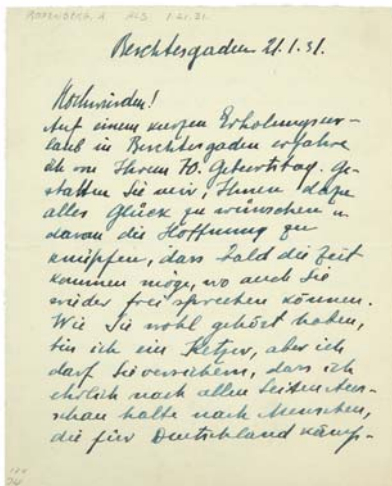 ROSENBERG, A. ALS 1.21.31.
Berchtesgaden 21.1.31.
Hochwürden!
Auf einem kurzen Erholungsur-
laub in Berchtesgaden erfahre
ich von Ihrem 70. Geburtstag. Ge-
statten Sie mir, Ihnen dazu
alles Glück zu wünschen u.
daran die Hoffnung zu
knüpfen, dass bald die Zeit
kommen möge, wo auch Sie
wieder frei sprechen können.
Wie Sie wohl gehört haben,
bin ich ein Ketzer, aber ich
darf Sie versichern, dass ich
ehrlich nach allen Seiten Aus-
schau halte nach Menschen,
die für Deutschland kämp-